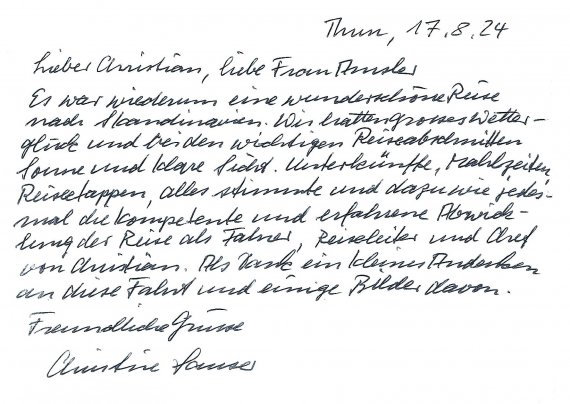 Thun, 17.8.24
Lieber Christian, liebe Frau Amsler
Es war wiederum eine wunderschöne Reise
nach Skandinavien. Wir hatten grosses Wetter-
glück und bei den wichtigen Reiseabschnitten
Sonne und klare Sicht. Unterkünfte, Mahlzeiten,
Reiseetappen, alles stimmte und dazu wie jedes-
mal die kompetente und erfahrene Abwick-
lung der Reise als Fahrer, Reiseleiter und Chef
von Christian. Als Dank ein kleines Andenken
an diese Fahrt und einige Bilder davon.
Freundliche Grüsse
Christine